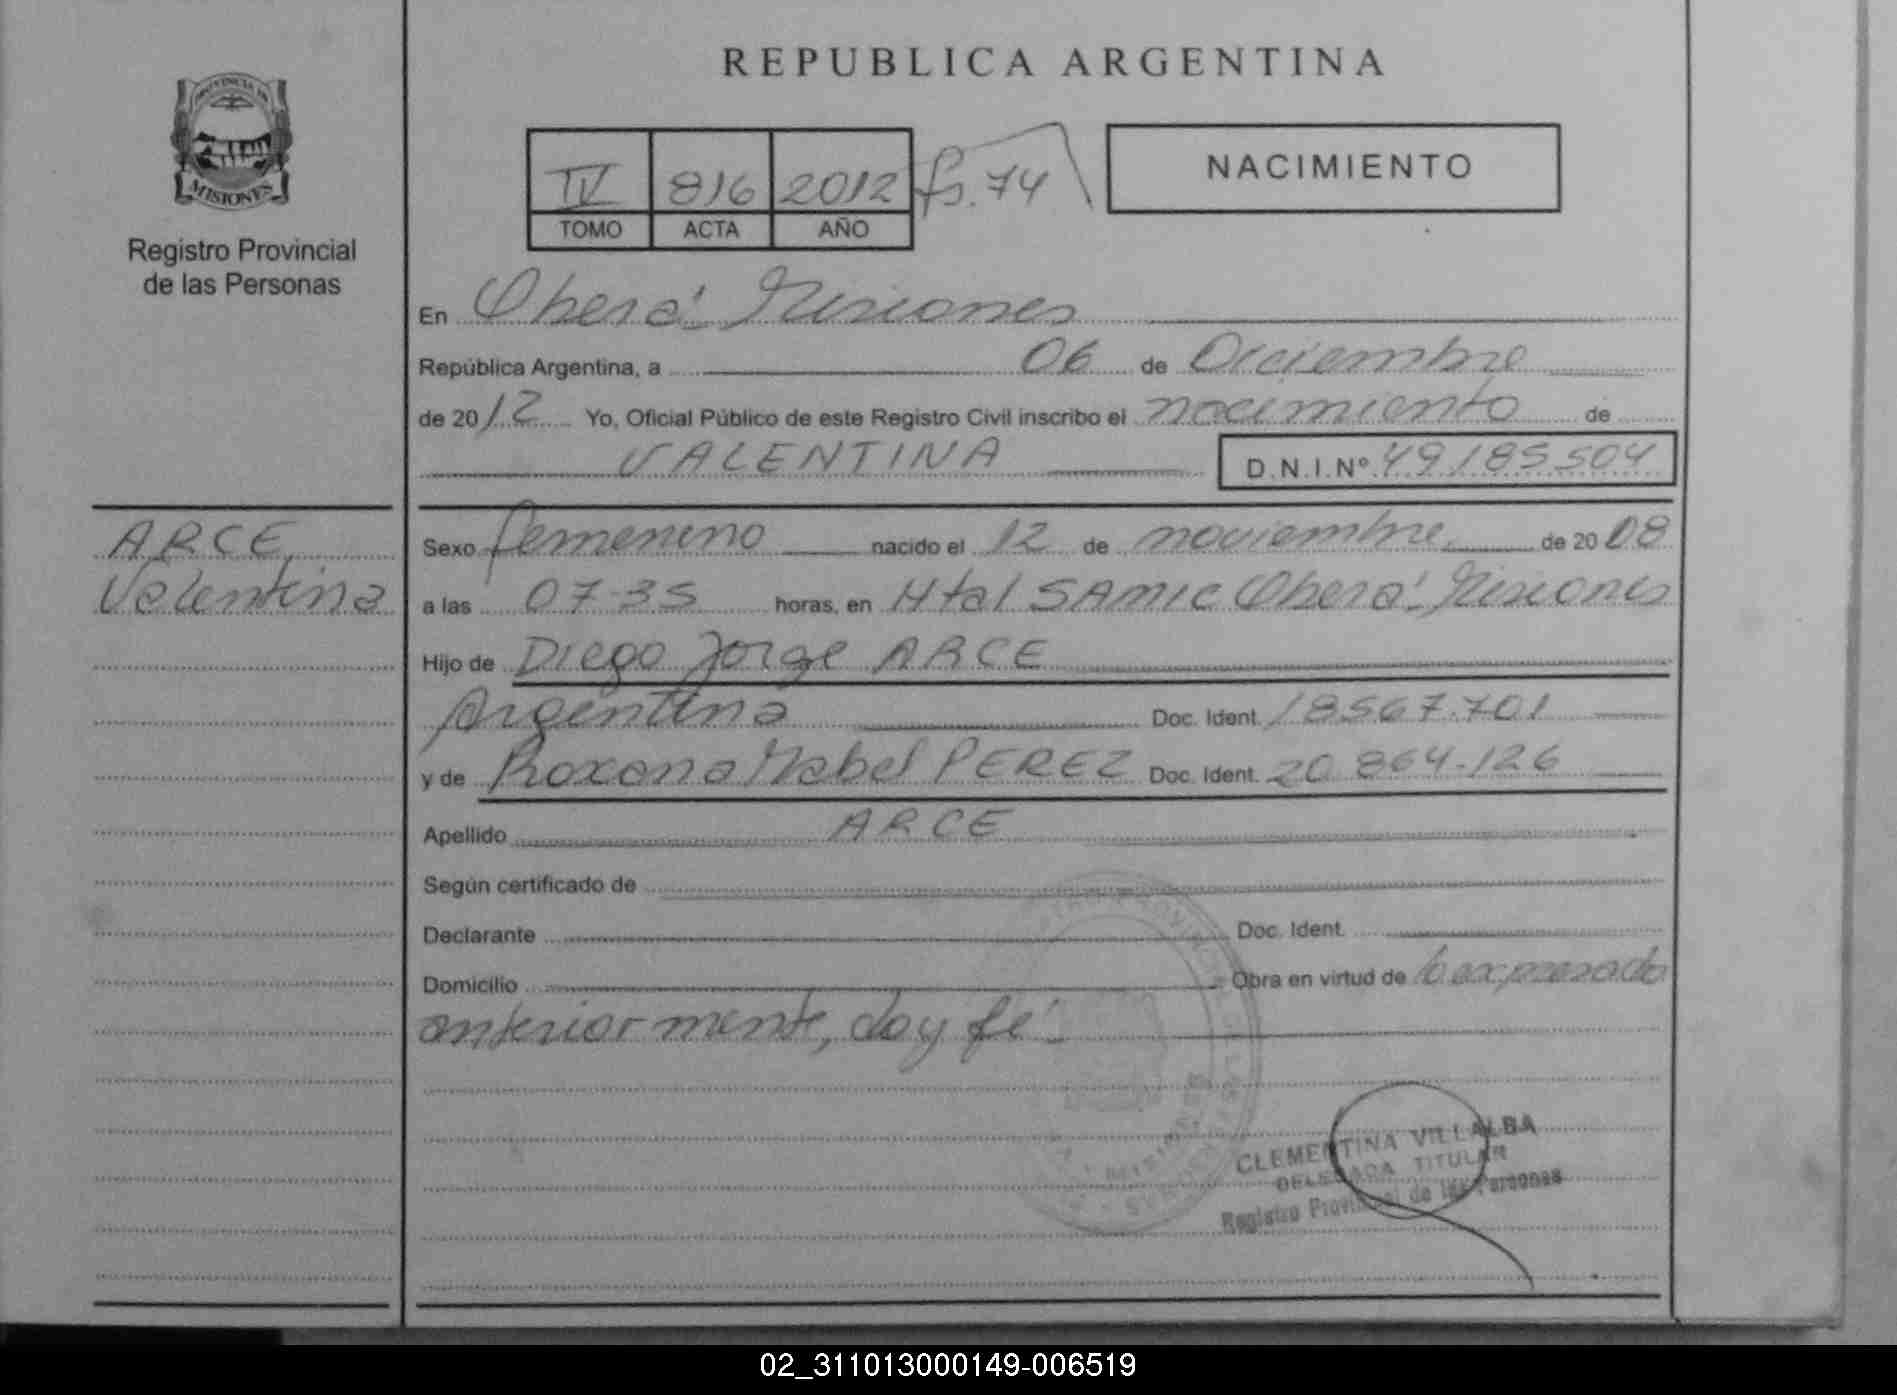 REPUBLICA ARGENTINA
PROVINCIA DE
MISIONES
Registro Provincial
de las Personas
IV 816 2012 fs. 74
TOMO ACTA AÑO
NACIMIENTO
En Oberá Misiones
República Argentina, a 06 de Diciembre
de 2012 Yo, Oficial Público de este Registro Civil inscribo el nacimiento de
VALENTINA D.N.I.Nº 49185504
ARCE,
Valentina
Sexo femenino nacido el 12 de noviembre de 2008
a las 07-35 horas, en Htal SAMIC Oberá Misiones
Hijo de Diego Jorge ARCE
Argentina Doc. Ident. 18567.701
y de Roxana Mabel PEREZ Doc. Ident. 20.864.126
Apellido ARCE
Según certificado de
Declarante Doc. Ident.
Domicilio Obra en virtud de lo expresado
anteriormente, doy fé
CLEMENTINA VILLALBA
DELEGADA TITULAR
Registro Provincial de las Personas
02_311013000149-006519